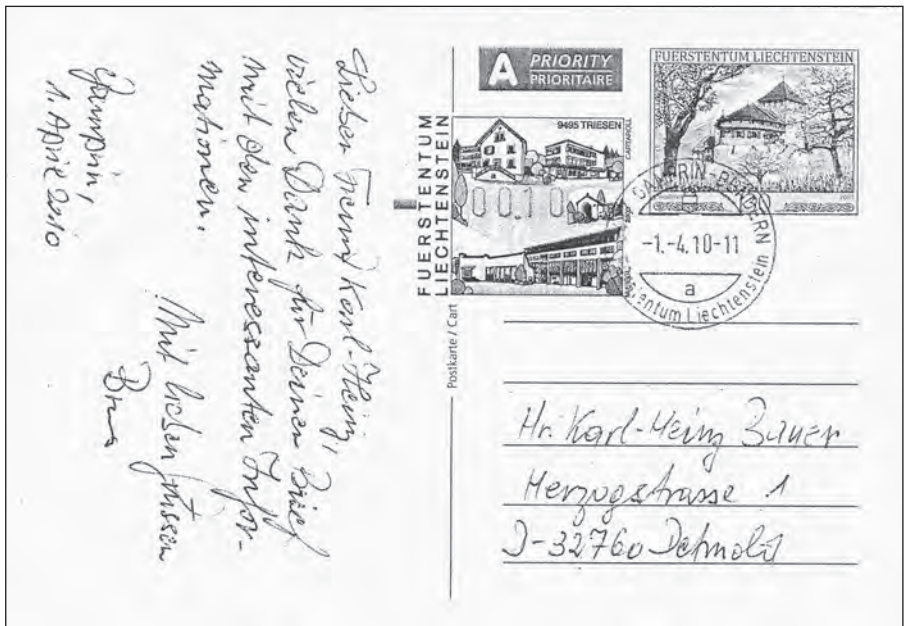 Lieber Freund Karl-Heinz,
vielen Dank für Deinen Brief
mit den interessanten Infor-
mationen.
Mit lieben Grüssen
Gamprin,
1. April 2010
A PRIORITY
PRIORITAIRE
FUERSTENTUM LIECHTENSTEIN
FUERSTENTUM
LIECHTENSTEIN
9495 TRIESEN
CARTAROLL
0010
GAMPRIN-BENDERN
-1.-4.10-11
a
Fürstentum Liechtenstein
Postkarte / Cart
Hr. Karl-Heinz Bauer
Herzogstrasse 1
D-32760 Detmold